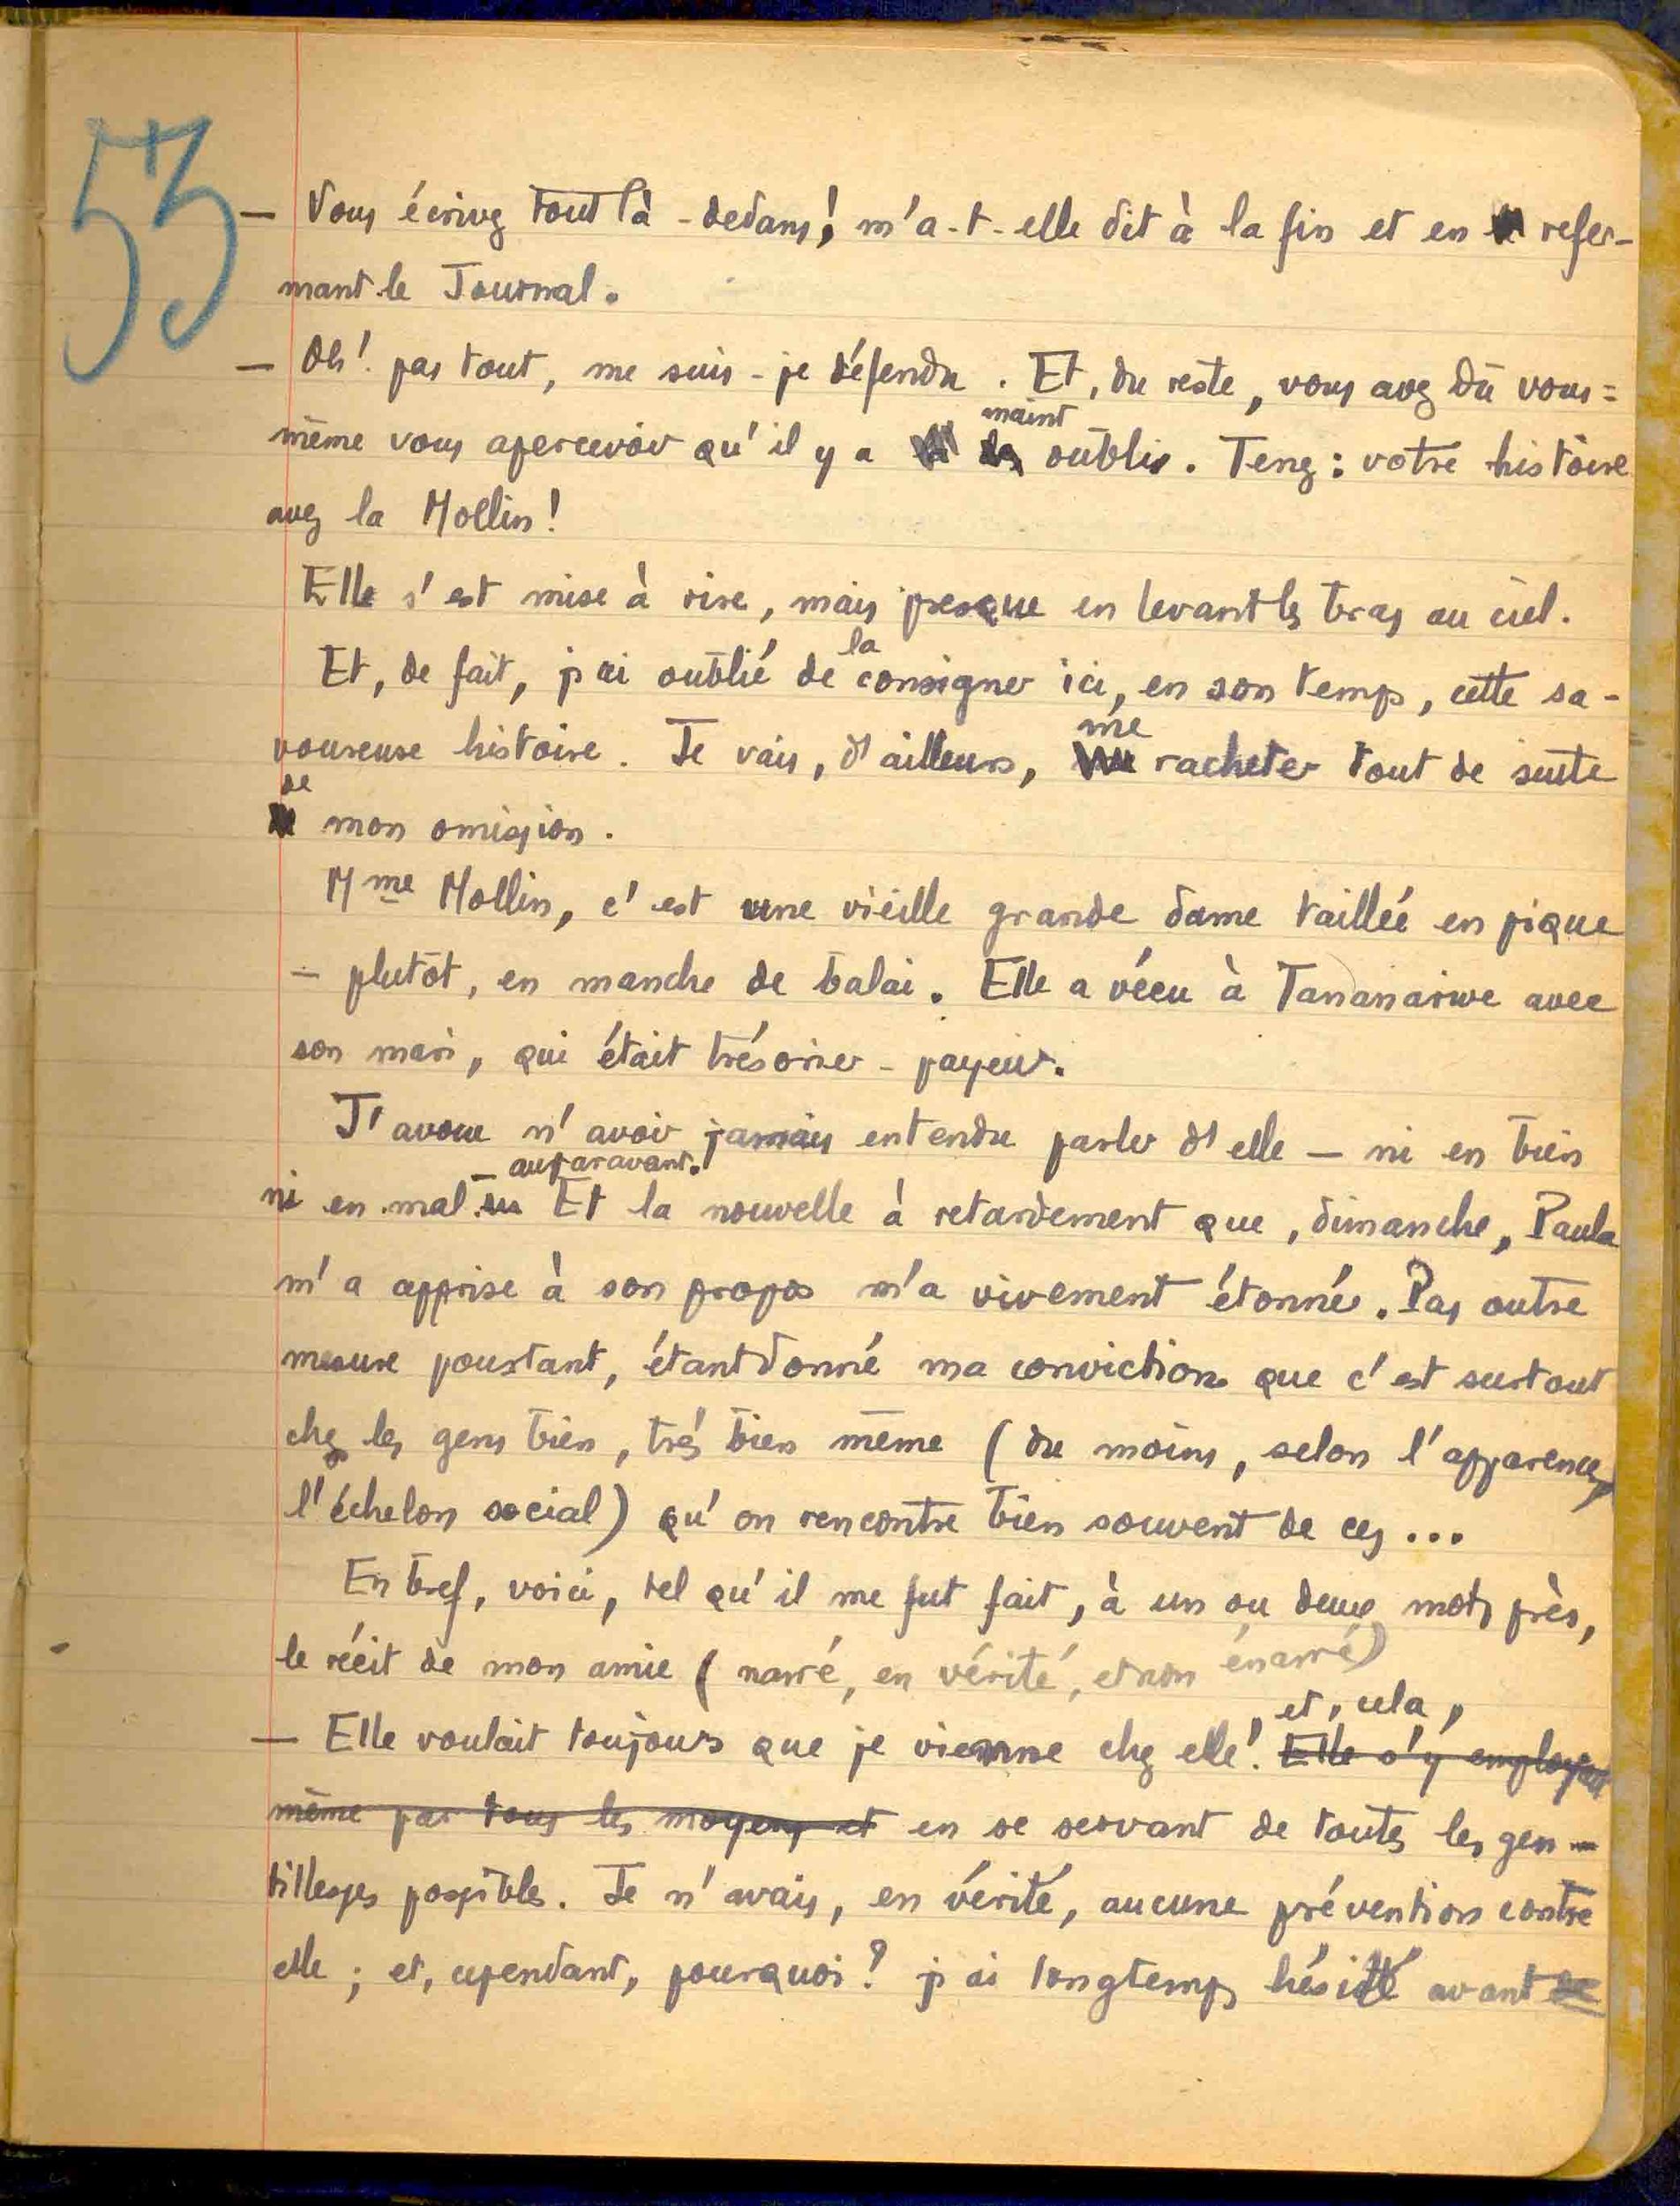 53
— Vous écrivez tout là-dedans! m'a-t-elle dit à la fin et en refer-
mant le Journal.
— Oh! pas tout, me suis-je défendu. Et, du reste, vous avez dû vous-
maint
même vous apercevoir qu'il y a oublis. Tenez: votre histoire
avez la Mollin!
Elle s'est mise à rire, mais presque en levant les bras au ciel.
la
Et, de fait, j'ai oublié de consigner ici, en son temps, cette sa-
me
voureuse histoire. Je vais, d'ailleurs, racheter tout de suite
de
mon omission.
Mme Mollin, c'est une vieille grande dame taillée en pique
— plutôt, en manche de balai. Elle a vécu à Tananarive avec
son mari, qui était trésorier-payeur.
J'avoue n'avoir jamais entendu parler d'elle — ni en bien
— auparavant.
ni en mal Et la nouvelle à retardement que, dimanche, Paula
m'a apprise à son propos m'a vivement étonné. Pas outre
mesure pourtant, étant donné ma conviction que c'est surtout
chez les gens bien, très bien même (du moins, selon l'apparence,
l'échelon social) qu'on rencontre bien souvent de ces...
En bref, voici, tel qu'il me fut fait, à un ou deux mots près,
le récit de mon amie (narré, en vérité, et non énarré)
, et, cela,
— Elle voulait toujours que je vienne chez elle! Elle s'y employait
même par tous les moyens et en se servant de toutes les gen-
tillesses possibles. Je n'avais, en vérité, aucune prévention contre
elle; et, cependant, pourquoi? j'ai longtemps hésité avant de